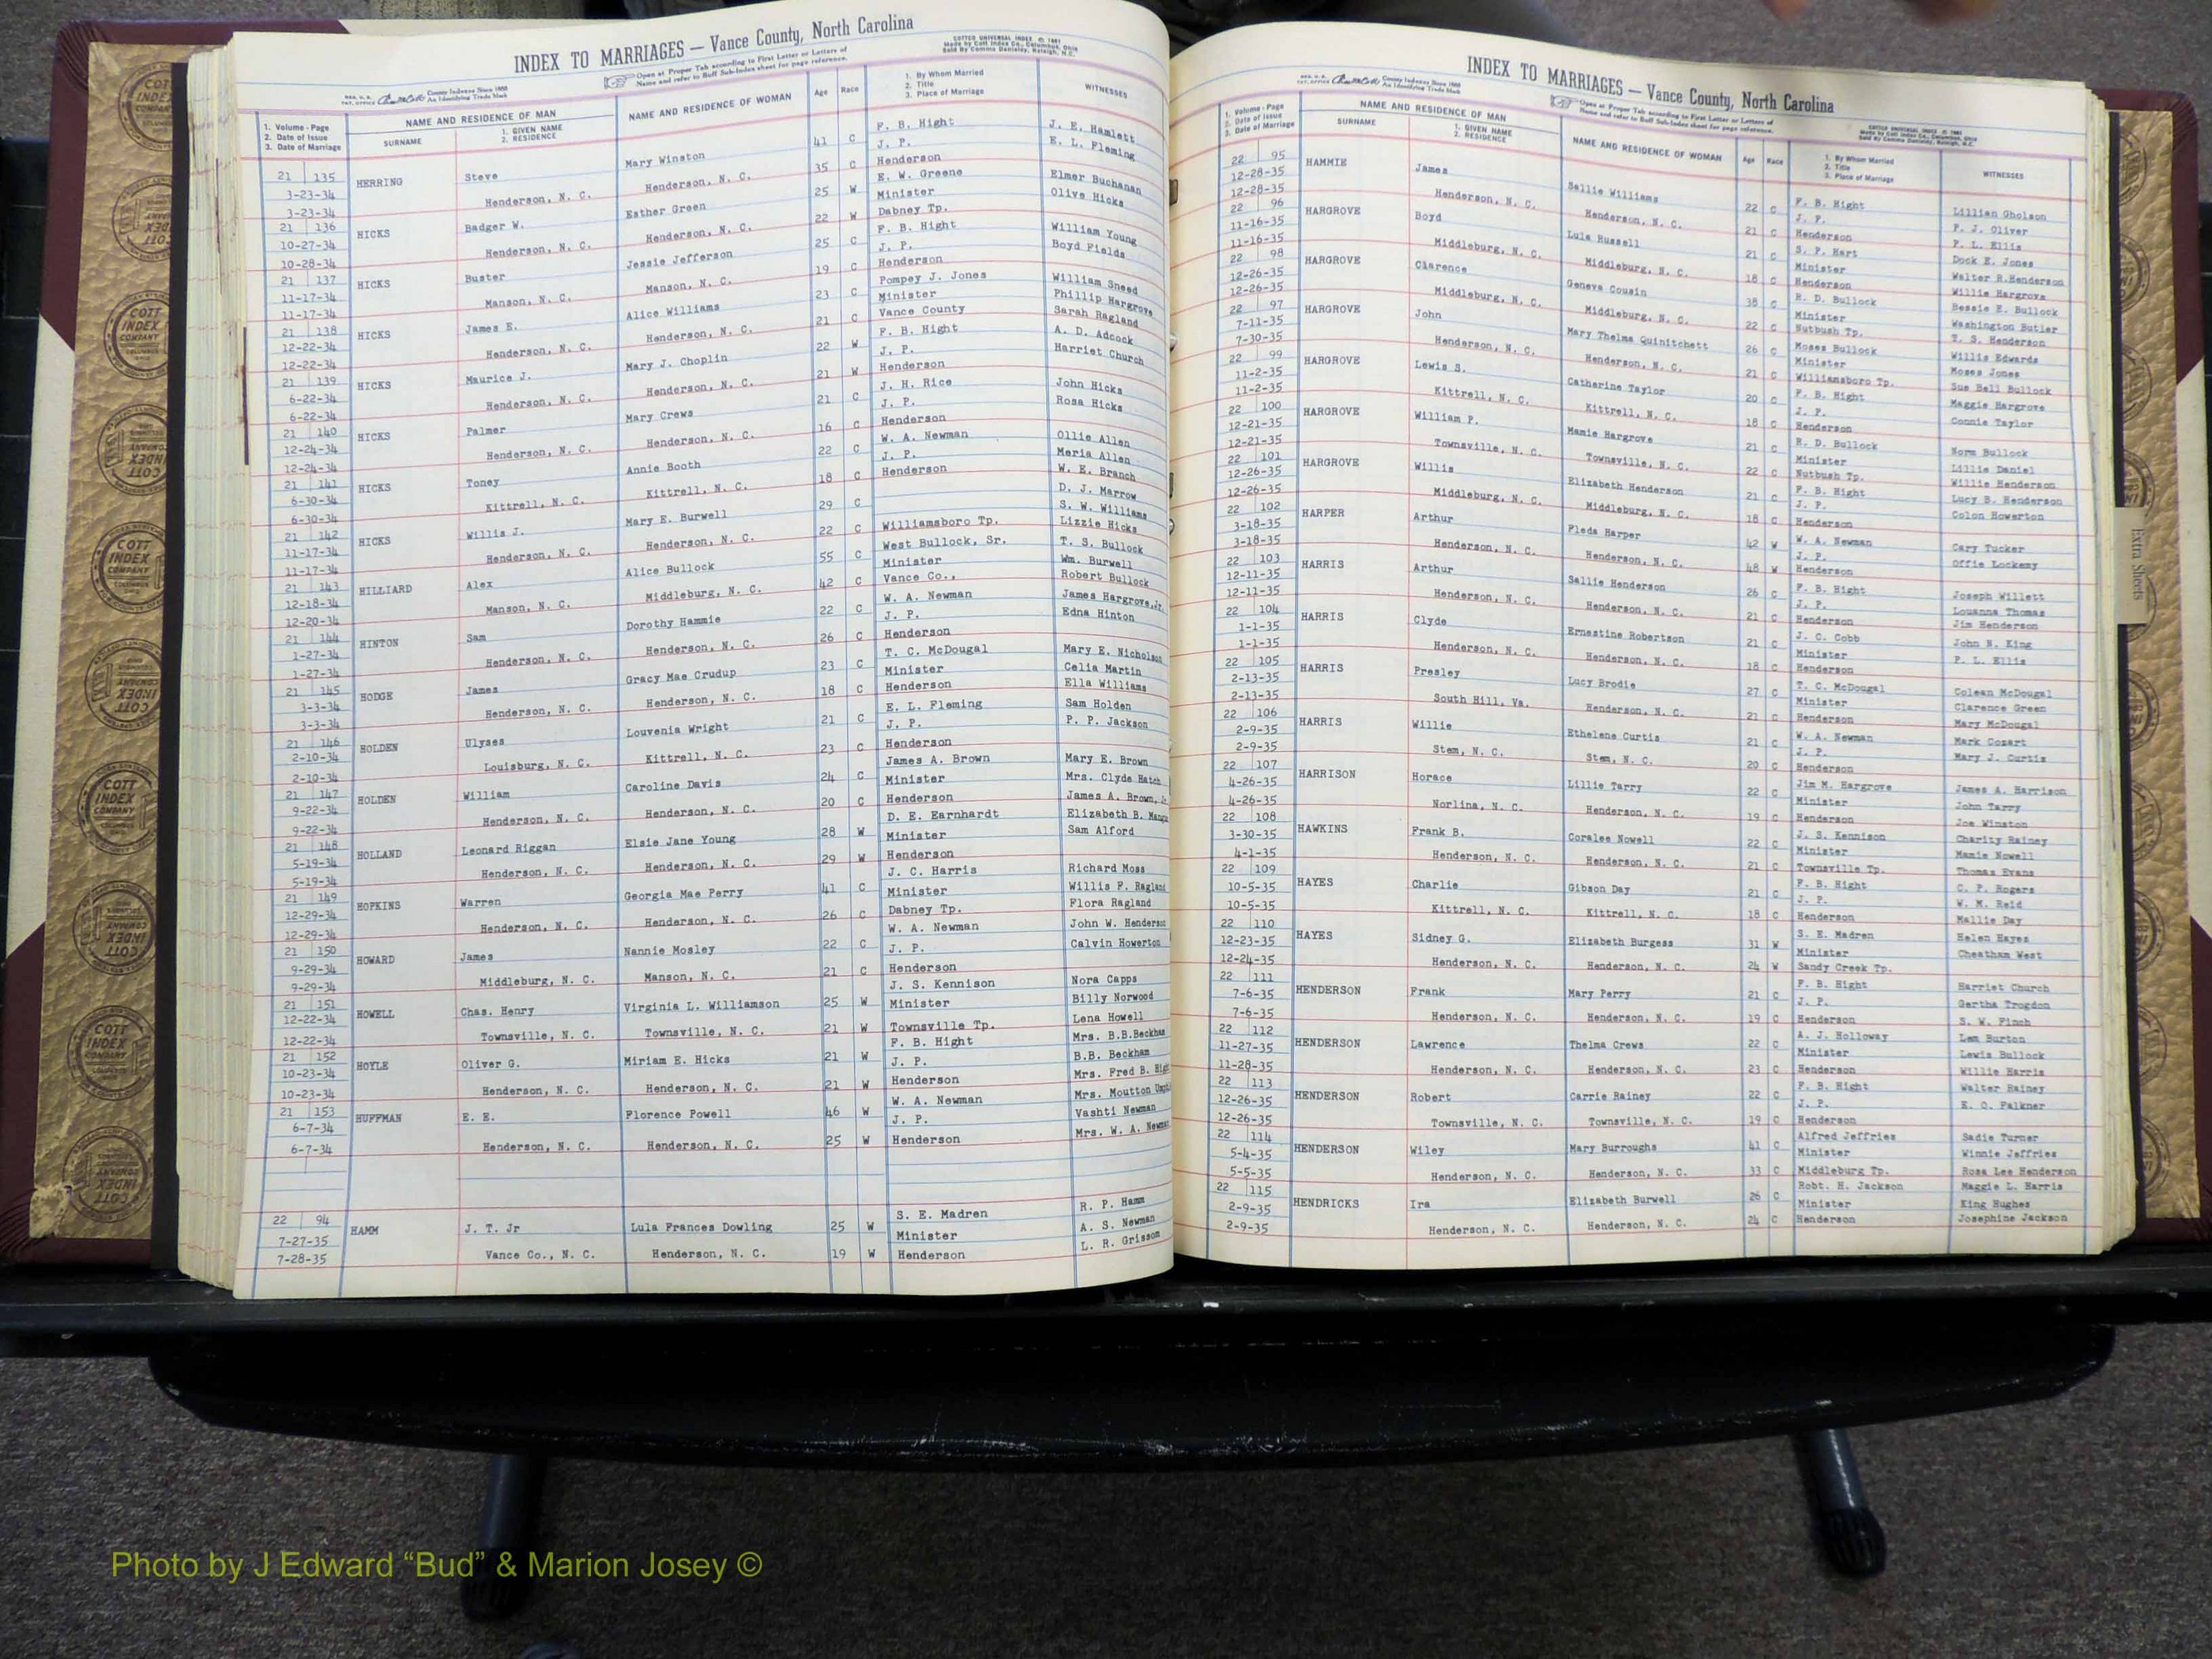 INDEX TO MARRIAGES — Vance County, North Carolina
COTTCO UNIVERSAL INDEX © 1961
Made by Cott Index Co., Columbus, Ohio
Open at Proper Tab according to First Letter or Letters of
Name and refer to Buff Sub-Index sheet for page reference.
County Indexes Since 1888
An Identifying Trade Mark
1. Volume - Page
2. Date of Issue
3. Date of Marriage
NAME AND RESIDENCE OF MAN
SURNAME
1. GIVEN NAME
2. RESIDENCE
NAME AND RESIDENCE OF WOMAN
Age Race
1. By Whom Married
2. Title
3. Place of Marriage
WITNESSES
21 135 HERRING Steve Mary Winston 41 C F. B. Hight J. E. Hamlett
3-23-34 J. P. E. L. Fleming
3-23-34 Henderson, N. C. Henderson, N. C. 35 C Henderson
21 136 HICKS Badger W. Esther Green 25 W E. W. Greene Elmer Buchanan
10-27-34 Minister Olive Hicks
10-28-34 Henderson, N. C. Henderson, N. C. 22 W Dabney Tp.
21 137 HICKS Buster Jessie Jefferson 25 C F. B. Hight William Young
11-17-34 J. P. Boyd Fields
11-17-34 Manson, N. C. Manson, N. C. 19 C Henderson
21 138 HICKS James E. Alice Williams 23 C Pompey J. Jones William Sneed
12-22-34 Minister Phillip Hargrove
12-22-34 Henderson, N. C. Henderson, N. C. 21 C Vance County Sarah Ragland
21 139 HICKS Maurice J. Mary J. Choplin 22 W F. B. Hight A. D. Adcock
6-22-34 J. P. Harriet Church
6-22-34 Henderson, N. C. Henderson, N. C. 21 W Henderson
21 140 HICKS Palmer Mary Crews 21 C J. H. Rice John Hicks
12-24-34 J. P. Rosa Hicks
12-24-34 Henderson, N. C. Henderson, N. C. 16 C Henderson
21 141 HICKS Toney Annie Booth 22 C W. A. Newman Ollie Allen
6-30-34 J. P. Meria Allen
6-30-34 Kittrell, N. C. Kittrell, N. C. 18 C Henderson W. E. Branch
21 142 HICKS Willis J. Mary E. Burwell 29 C D. J. Marrow
11-17-34 S. W. Williams
11-17-34 Henderson, N. C. Henderson, N. C. 22 C Williamsboro Tp. Lizzie Hicks
21 143 HILLIARD Alex Alice Bullock 55 C West Bullock, Sr. T. S. Bullock
12-18-34 Minister Wm. Burwell
12-20-34 Manson, N. C. Middleburg, N. C. 42 C Vance Co., Robert Bullock
21 144 HINTON Sam Dorothy Hammie 22 C W. A. Newman James Hargrove,Jr.
1-27-34 J. P. Edna Hinton
1-27-34 Henderson, N. C. Henderson, N. C. 26 C Henderson
21 145 HODGE James Gracy Mae Crudup 23 C T. C. McDougal Mary E. Nicholson
3-3-34 Minister Celia Martin
3-3-34 Henderson, N. C. Henderson, N. C. 18 C Henderson Ella Williams
21 146 HOLDEN Ulyses Louvenia Wright 21 C E. L. Fleming Sam Holden
2-10-34 J. P. P. P. Jackson
2-10-34 Louisburg, N. C. Kittrell, N. C. 23 C Henderson
21 147 HOLDEN William Caroline Davis 24 C James A. Brown Mary E. Brown
9-22-34 Minister Mrs. Clyde Hatch
9-22-34 Henderson, N. C. Henderson, N. C. 20 C Henderson James A. Brown,
21 148 HOLLAND Leonard Riggan Elsie Jane Young 28 W D. E. Earnhardt Elizabeth B.
5-19-34 Minister Sam Alford
5-19-34 Henderson, N. C. Henderson, N. C. 29 W Henderson
21 149 HOPKINS Warren Georgia Mae Perry 41 C J. C. Harris Richard Moss
12-29-34 Minister Willis F. Ragland
12-29-34 Henderson, N. C. Henderson, N. C. 26 C Dabney Tp. Flora Ragland
21 150 HOWARD James Nannie Mosley 22 C W. A. Newman John W. Henderson
9-29-34 J. P. Calvin Howerton
9-29-34 Middleburg, N. C. Manson, N. C. 21 C Henderson
21 151 HOWELL Chas. Henry Virginia L. Williamson 25 W J. S. Kennison Nora Capps
12-22-34 Minister Billy Norwood
12-22-34 Townsville, N. C. Townsville, N. C. 21 W Townsville Tp. Lena Howell
21 152 HOYLE Oliver G. Miriam E. Hicks 21 W F. B. Hight Mrs. B.B.Beckham
10-23-34 J. P. B.B. Beckham
10-23-34 Henderson, N. C. Henderson, N. C. 21 W Henderson Mrs. Fred B.
21 153 HUFFMAN E. E. Florence Powell 46 W W. A. Newman Mrs. Moutton
6-7-34 J. P. Vashti Newman
6-7-34 Henderson, N. C. Henderson, N. C. 25 W Henderson Mrs. W. A.
22 94 HAMM J. T. Jr Lula Frances Dowling 25 W S. E. Madren R. P. Hamm
7-27-35 Minister A. S. Newman
7-28-35 Vance Co., N. C. Henderson, N. C. 19 W Henderson L. R. Grissom
INDEX TO MARRIAGES — Vance County, North Carolina
County Indexes Since 1888
An Identifying Trade Mark
Open at Proper Tab according to First Letter or Letters of
Name and refer to Buff Sub-Index sheet for page reference.
COTTCO UNIVERSAL INDEX © 1961
Made by Cott Index Co., Columbus, Ohio
1. Volume - Page
2. Date of Issue
3. Date of Marriage
NAME AND RESIDENCE OF MAN
SURNAME
1. GIVEN NAME
2. RESIDENCE
NAME AND RESIDENCE OF WOMAN
Age Race
1. By Whom Married
2. Title
3. Place of Marriage
WITNESSES
22 95 HAMMIE James Sallie Williams 22 C F. B. Hight Lillian Gholson
12-28-35 J. P. P. J. Oliver
12-28-35 Henderson, N. C. Henderson, N. C. 21 C Henderson P. L. Ellis
22 96 HARGROVE Boyd Lula Russell 21 C S. P. Hart Dock E. Jones
11-16-35 Minister Walter R.Henderson
11-16-35 Middleburg, N. C. Middleburg, N. C. 18 C Henderson Willie Hargrove
22 98 HARGROVE Clarence Geneva Cousin 38 C R. D. Bullock Bessie E. Bullock
12-26-35 Minister Washington Butler
12-26-35 Middleburg, N. C. Middleburg, N. C. 22 C Nutbush Tp. T. S. Henderson
22 97 HARGROVE John Mary Thelma Quinitchett 26 C Moses Bullock Willis Edwards
7-11-35 Minister Moses Jones
7-30-35 Henderson, N. C. Henderson, N. C. 21 C Williamsboro Tp. Sue Bell Bullock
22 99 HARGROVE Lewis S. Catherine Taylor 20 C F. B. Hight Maggie Hargrove
11-2-35 J. P. Connie Taylor
11-2-35 Kittrell, N. C. Kittrell, N. C. 18 C Henderson
22 100 HARGROVE William P. Mamie Hargrove 21 C R. D. Bullock Norm Bullock
12-21-35 Minister Lillie Daniel
12-21-35 Townsville, N. C. Townsville, N. C. 22 C Nutbush Tp. Willie Henderson
22 101 HARGROVE Willis Elizabeth Henderson 21 C F. B. Hight Lucy B. Henderson
12-26-35 J. P. Colon Howerton
12-26-35 Middleburg, N. C. Middleburg, N. C. 18 C Henderson
22 102 HARPER Arthur Fleda Harper 42 W W. A. Newman Cary Tucker
3-18-35 J. P. Offie Lockemy
3-18-35 Henderson, N. C. Henderson, N. C. 48 W Henderson
22 103 HARRIS Arthur Sallie Henderson 26 C F. B. Hight Joseph Willett
12-11-35 J. P. Louanna Thomas
12-11-35 Henderson, N. C. Henderson, N. C. 21 C Henderson Jim Henderson
22 104 HARRIS Clyde Ernestine Robertson 21 C J. C. Cobb John N. King
1-1-35 Minister P. L. Ellis
1-1-35 Henderson, N. C. Henderson, N. C. 18 C Henderson
22 105 HARRIS Presley Lucy Brodie 27 C T. C. McDougal Colean McDougal
2-13-35 Minister Clarence Green
2-13-35 South Hill, Va. Henderson, N. C. 21 C Henderson Mary McDougal
22 106 HARRIS Willie Ethelene Curtis 21 C W. A. Newman Mark Cozart
2-9-35 J. P. Mary J. Curtis
2-9-35 Stem, N. C. Stem, N. C. 20 C Henderson
22 107 HARRISON Horace Lillie Tarry 22 C Jim M. Hargrove James A. Harrison
4-26-35 Minister John Tarry
4-26-35 Norlina, N. C. Henderson, N. C. 19 C Henderson Joe Winston
22 108 HAWKINS Frank B. Coralee Nowell 22 C J. S. Kennison Charity Rainey
3-30-35 Minister Mamie Nowell
4-1-35 Henderson, N. C. Henderson, N. C. 21 C Townsville Tp. Thomas Evans
22 109 HAYES Charlie Gibson Day 21 C F. B. Hight C. P. Rogers
10-5-35 J. P. W. M. Reid
10-5-35 Kittrell, N. C. Kittrell, N. C. 18 C Henderson Mallie Day
22 110 HAYES Sidney G. Elizabeth Burgess 31 W S. E. Madren Helen Hayes
12-23-35 Minister Cheatham West
12-24-35 Henderson, N. C. Henderson, N. C. 24 W Sandy Creek Tp.
22 111 HENDERSON Frank Mary Perry 21 C F. B. Hight Harriet Church
7-6-35 J. P. Gertha Trogdon
7-6-35 Henderson, N. C. Henderson, N. C. 19 C Henderson S. W. Finch
22 112 HENDERSON Lawrence Thelma Crews 22 C A. J. Holloway Lem Burton
11-27-35 Minister Lewis Bullock
11-28-35 Henderson, N. C. Henderson, N. C. 23 C Henderson Willie Harris
22 113 HENDERSON Robert Carrie Rainey 22 C F. B. Hight Walter Rainey
12-26-35 J. P. E. O. Falkner
12-26-35 Townsville, N. C. Townsville, N. C. 19 C Henderson
22 114 HENDERSON Wiley Mary Burroughs 41 C Alfred Jeffries Sadie Turner
5-4-35 Minister Winnie Jeffries
5-5-35 Henderson, N. C. Henderson, N. C. 33 C Middleburg Tp. Rosa Lee Henderson
22 115 HENDRICKS Ira Elizabeth Burwell 26 C Robt. H. Jackson Maggie L. Harris
2-9-35 Minister King Hughes
2-9-35 Henderson, N. C. Henderson, N. C. 24 C Henderson Josephine Jackson
Extra Sheets
COTT INDEX COMPANY COLUMBUS
Photo by J Edward “Bud” & Marion Josey ©